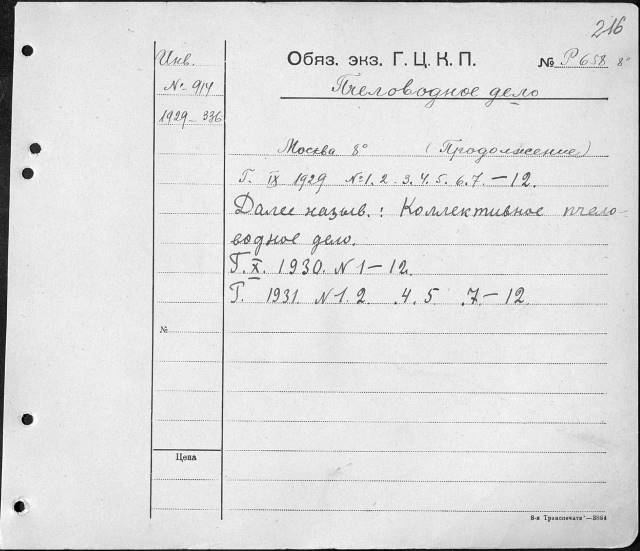 216
Инв.
№ 914
1929–336
Обяз. экз. Г. Ц. К. П.
№ Р 658 8°
Пчеловодное дело
Москва 8° (Продолжение)
Г. IX 1929 №1. 2. 3. 4. 5. 6. 7. — 12.
Далее назыв.: Коллективное пчело-
водное дело.
Г. X. 1930. N 1 — 12.
Г. 1931. N 1. 2 .4. 5 .7 — 12.
№
Цена
8-я Транспечати—3864